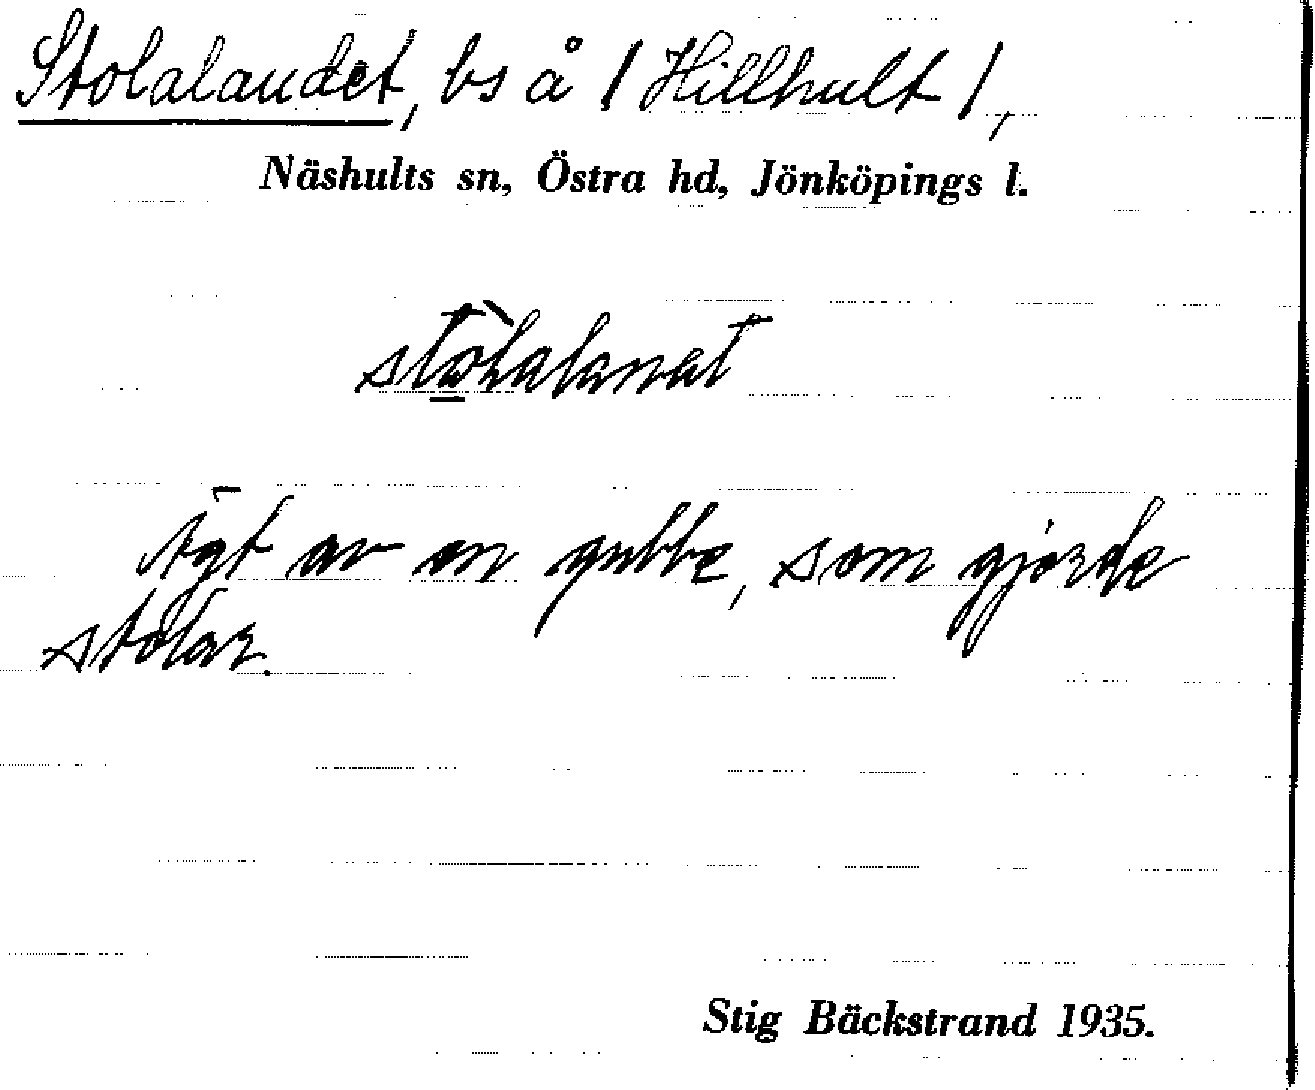 Stolalandet, bs å / Hillhult /,
Näshults sn, Östra hd, Jönköpings l.
Ägt av en gubbe, som gjorde
stolar.
Stig Bäckstrand 1935.